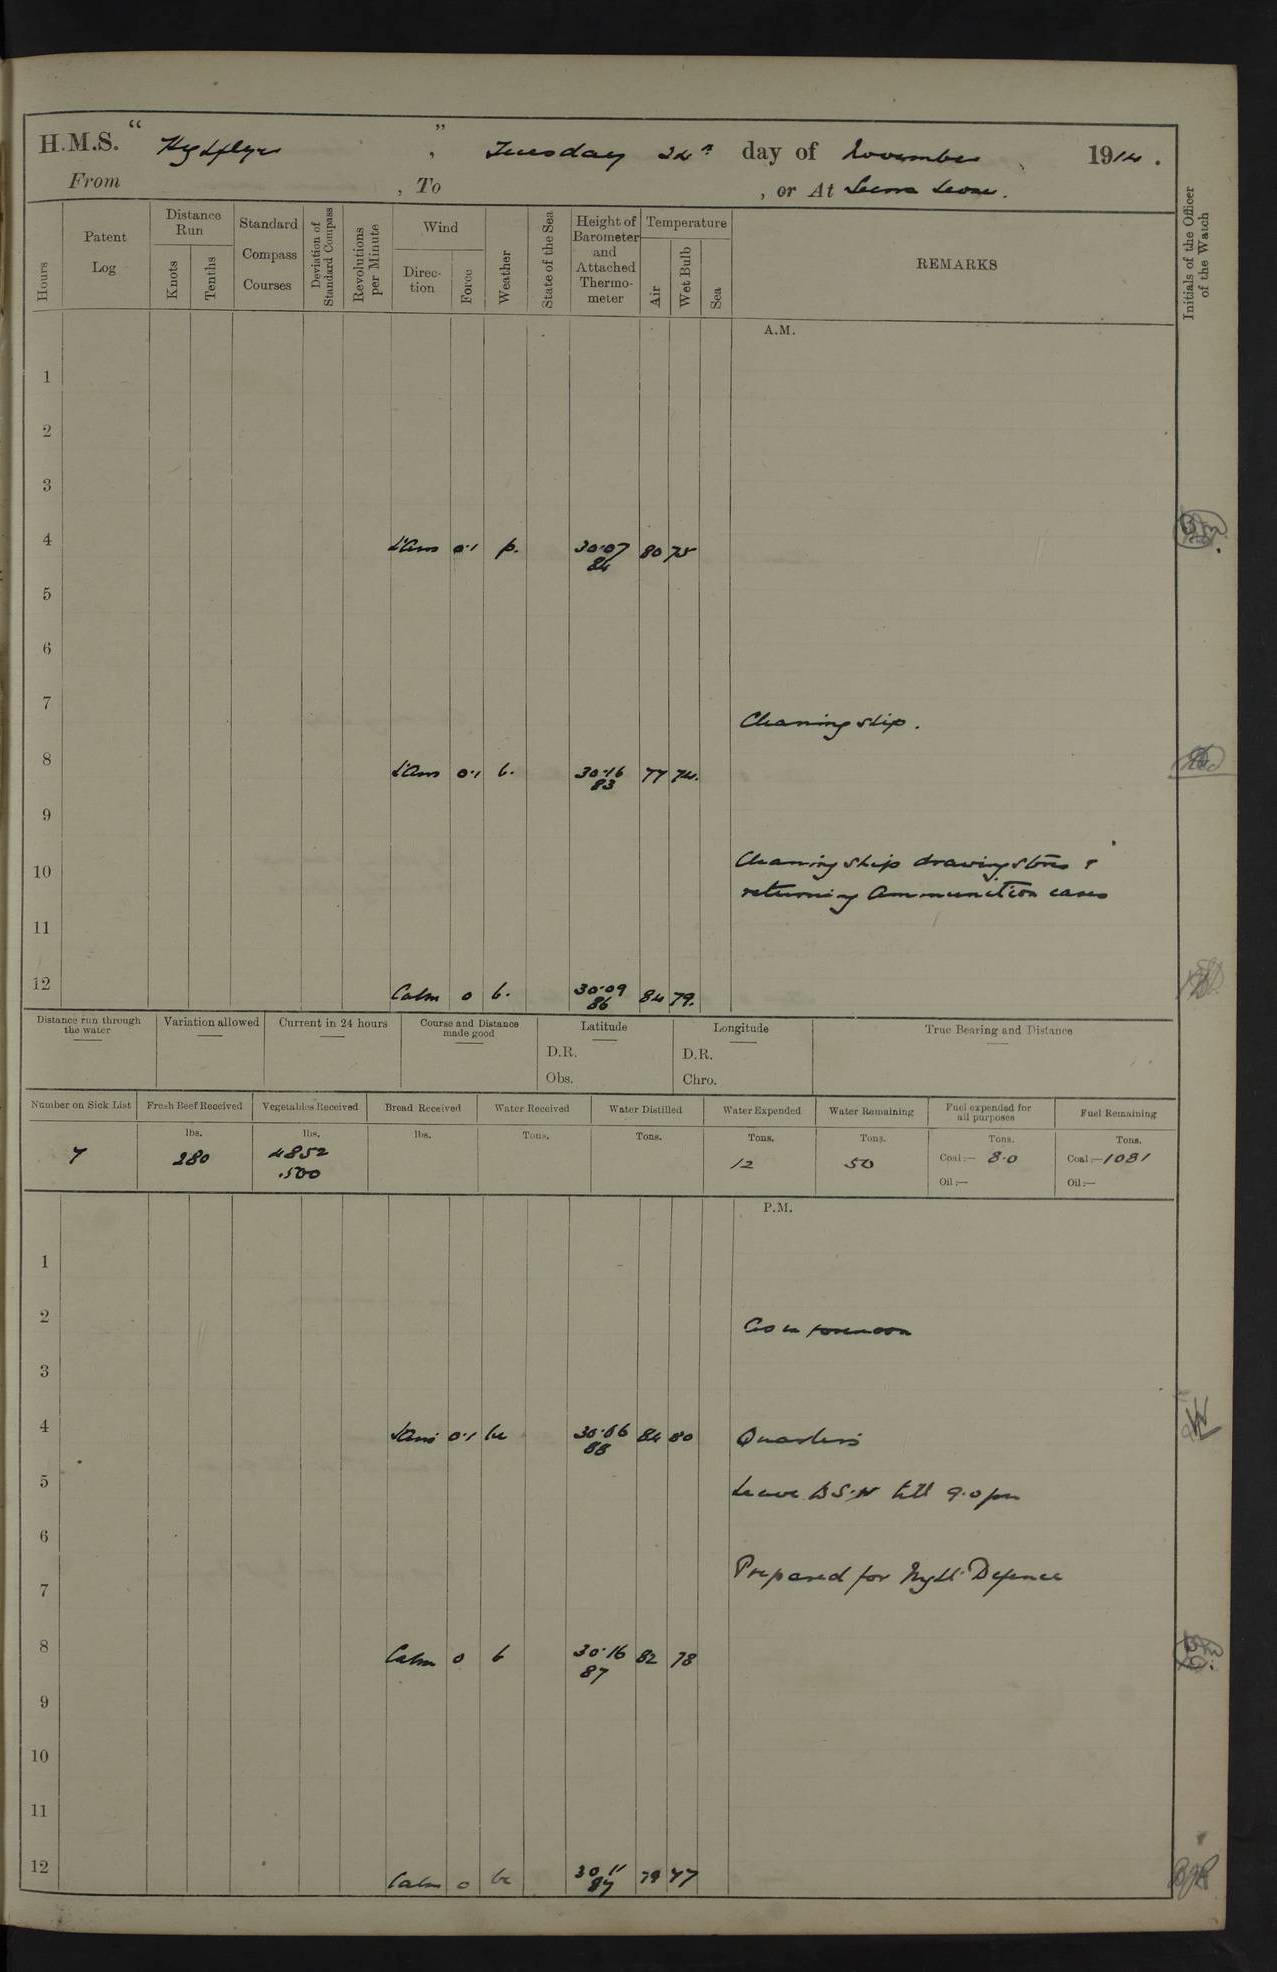 H.M.S. "Highflyer", Tuesday 24th day of November 1914.
From , To , or At Sierra Leone.
Hours
Patent Log
Distance Run
Knots
Tenths
Standard Compass Courses
Deviation of Standard Compass
Revolutions per Minute
Wind
Direction
Force
Weather
State of the Sea
Height of Barometer and Attached Thermometer
Temperature
Air
Wet Bulb
Sea
REMARKS
Initials of the Officer of the Watch
A.M.
1
2
3
4 L'Airs 0·1 p. 30·07 80 75
84
5
6
7
Cleaning ship.
8 L'Airs 0·1 b. 30·16 77 74.
83
9
Cleaning ship drawing stores &
10
returning Ammunition cases
11
12 Calm 0 b. 30·09 84 79.
86
Distance run through the water
Variation allowed
Current in 24 hours
Course and Distance made good
Latitude
D.R.
Obs.
Longitude
D.R.
Chro.
True Bearing and Distance
Number on Sick List
7
Fresh Beef Received
lbs.
280
Vegetables Received
lbs.
4852
.500
Bread Received
lbs.
Water Received
Tons.
Water Distilled
Tons.
Water Expended
Tons.
12
Water Remaining
Tons.
50
Fuel expended for all purposes
Tons.
Coal:— 8·0
Oil:—
Fuel Remaining
Tons.
Coal:— 1081
Oil:—
P.M.
1
2
As in forenoon
3
4 L'Airs 0·1 bc 30·06 84 80 Quarters
88
5
Leave to S·W till 9·0 pm
6
Prepared for Night Defence
7
8 Calm 0 b 30·16 82 78
87
9
10
11
12 Calm 0 bc 30 11 79 77
87